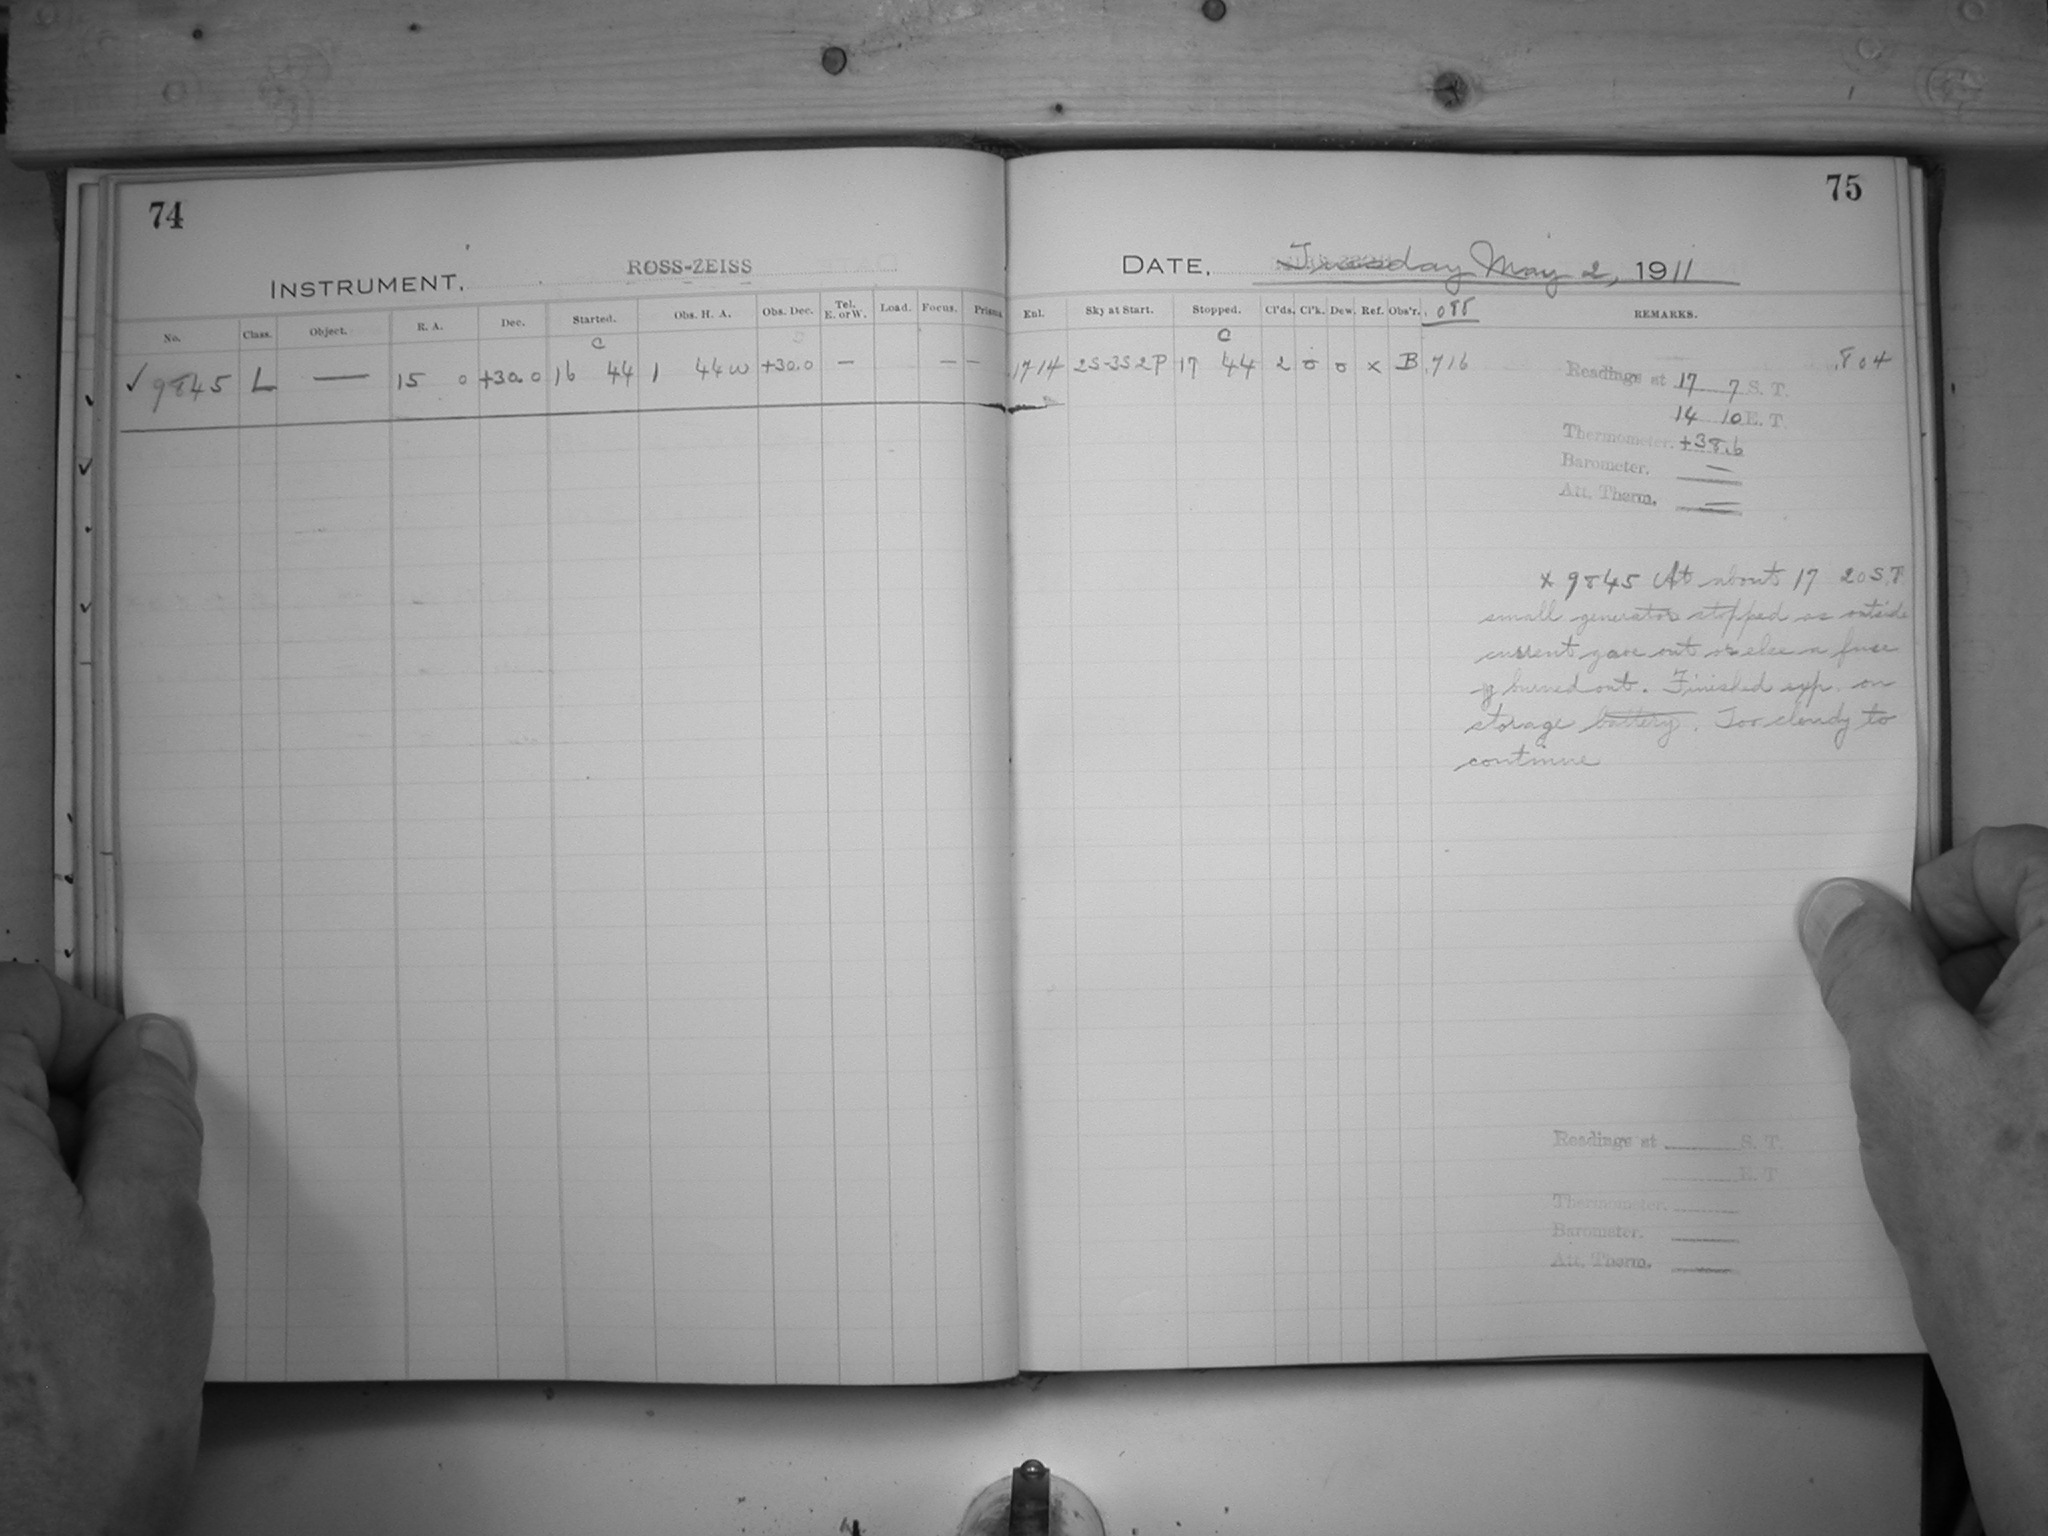 74
75
INSTRUMENT, ROSS-ZEISS
DATE, Tuesday May 2, 1911
No. Class. Object. R. A. Dec. Started. Obs. H. A. Obs. Dec. Tel. E. or W. Load. Focus. Prisms Enl. Sky at Start. Stopped. Cl'ds. Cl'k. Dew. Ref. Obs'r. .088 REMARKS.
c c c
✓ 9845 L — 15 0 +30.0 16 44 1 44 w +30.0 — — — 1714 2S-3S2P 17 44 2 0 0 x B .716 .804
Readings at 17 7 S. T.
14 10 E. T.
Thermometer. +38.6
Barometer. —
Att. Therm. —
x 9845 At about 17 20 S.T.
small generator stopped as outside
current gave out or else a fuse
burned out. Finished exp. on
storage battery. Too cloudy to
continue
Readings at S. T.
E. T.
Thermometer.
Barometer.
Att. Therm.